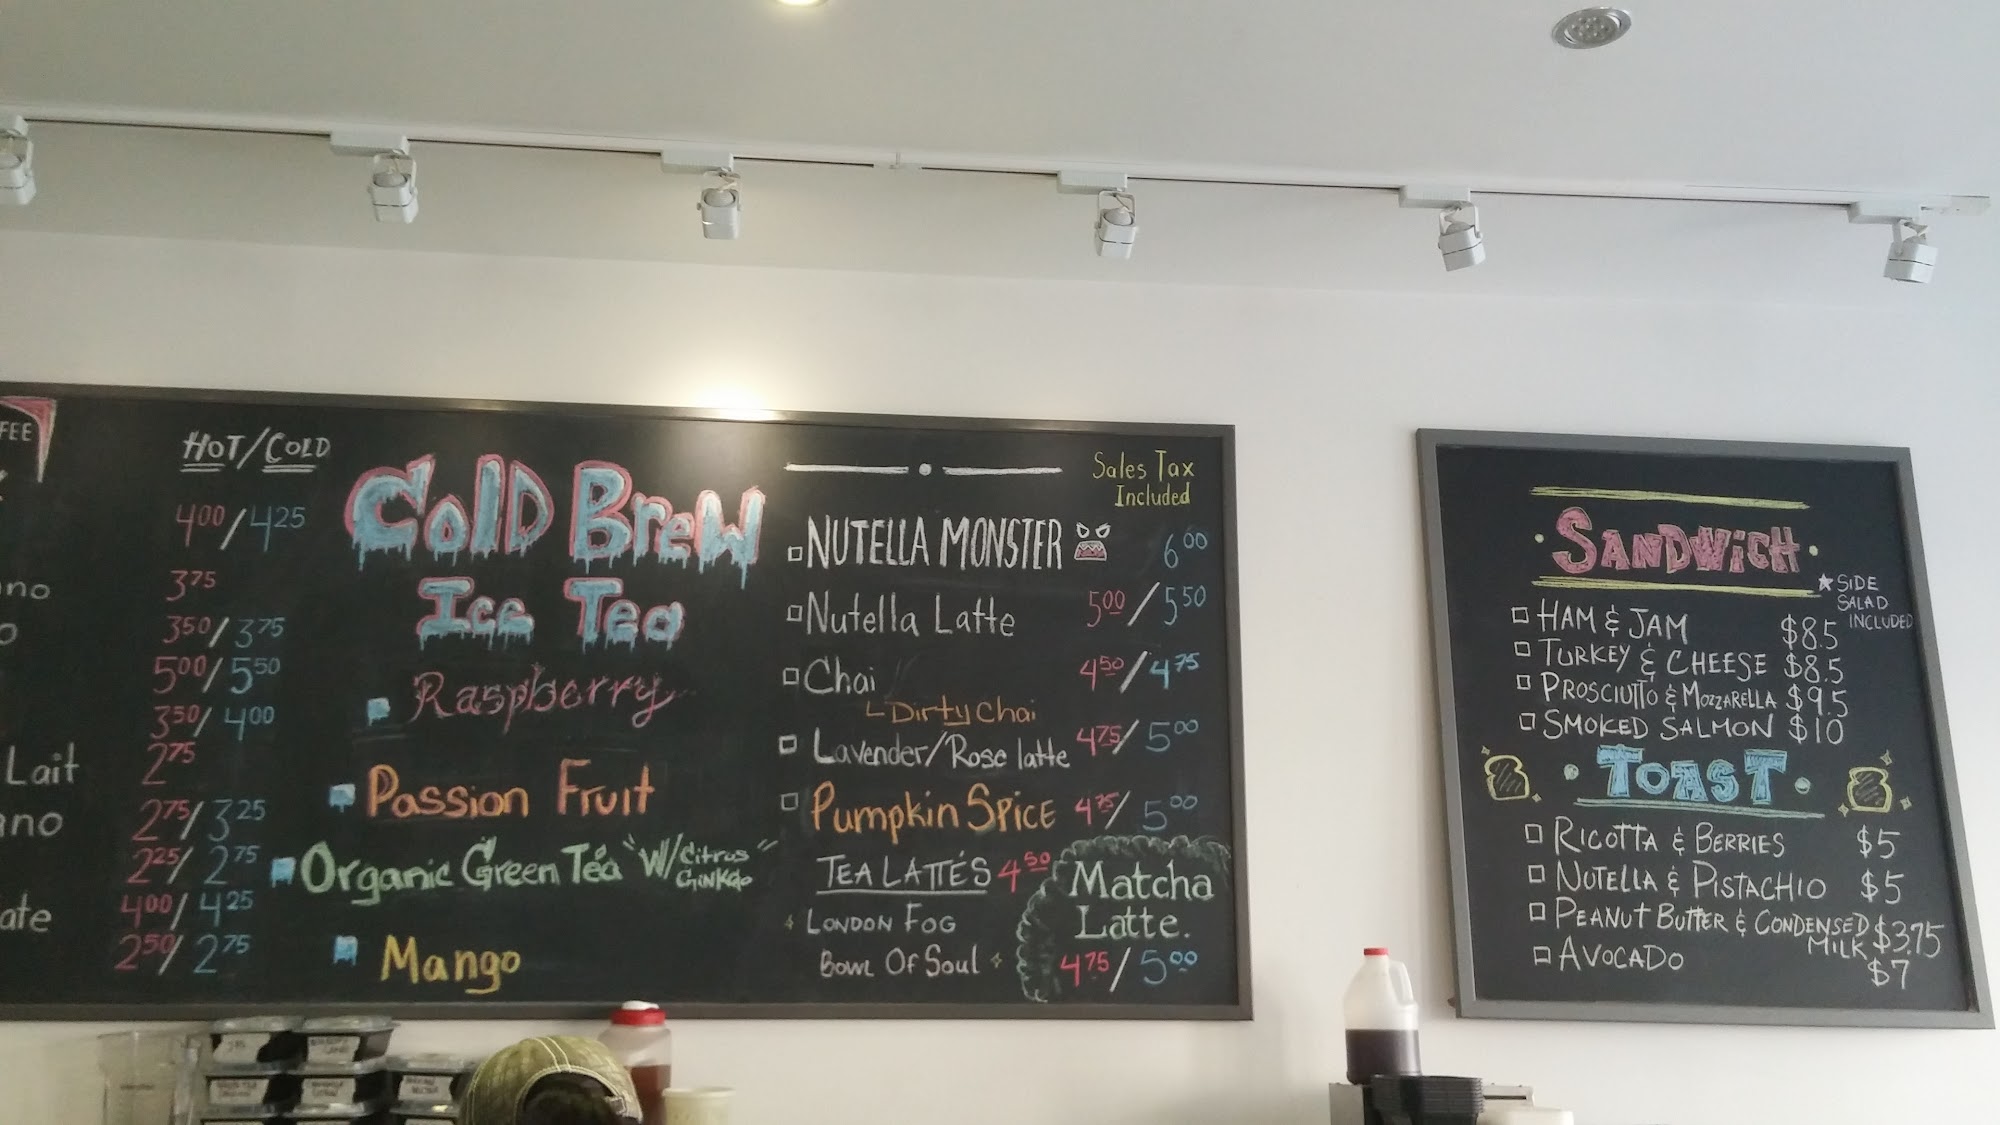 FEE
HOT/COLD
400/425
ano 375
o 350/375
500/550
350/400
Lait 275
ano 275/325
225/275
ate 400/425
250/275
Cold Brew
Ice Tea
Raspberry
Passion Fruit
Organic Green Tea "W/Citrus Ginkgo"
Mango
Sales Tax
Included
NUTELLA MONSTER 600
Nutella Latte 500/550
Chai 450/475
Dirty Chai
Lavender/Rose latte 475/500
Pumpkin Spice 475/500
TEA LATTÉS 450
LONDON FOG
BOWL OF SOUL
Matcha
Latte.
475/500
SANDWICH
SIDE
SALAD
INCLUDED
HAM & JAM $8.5
TURKEY & CHEESE $8.5
PROSCIUTTO & MOZZARELLA $9.5
SMOKED SALMON $10
TOAST
RICOTTA & BERRIES $5
NUTELLA & PISTACHIO $5
PEANUT BUTTER & CONDENSED
MILK $3.75
AVOCADO $7